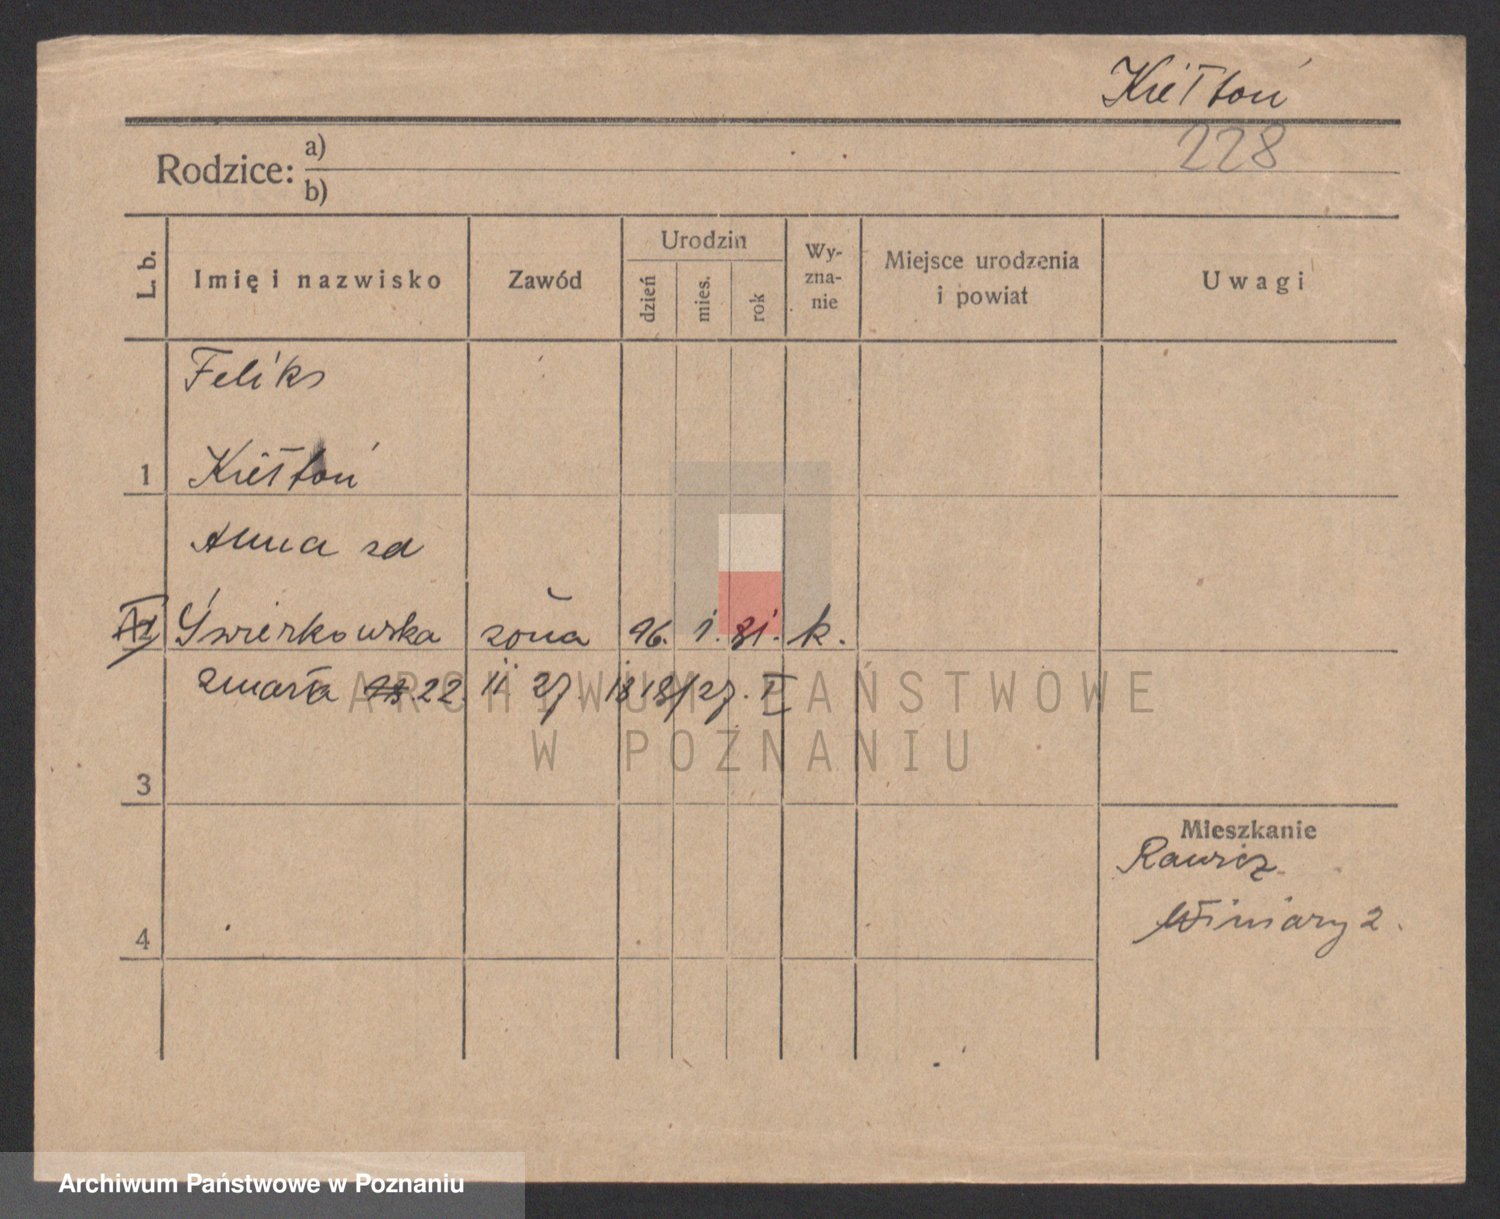 Kiełtoń
228
Rodzice: a)
b)
L. b.
Imię i nazwisko
Zawód
Urodzin
dzień
mies.
rok
Wy-
zna-
nie
Miejsce urodzenia
i powiat
Uwagi
Feliks
1 Kiełtoń
Anna zd
Świerkowska żona 16. 1. 81. k.
zmarła 22. 11 27
3
Mieszkanie
Rawicz
Winiary 2.
4
ARCHIWUM PAŃSTWOWE
W POZNANIU
Archiwum Państwowe w Poznaniu